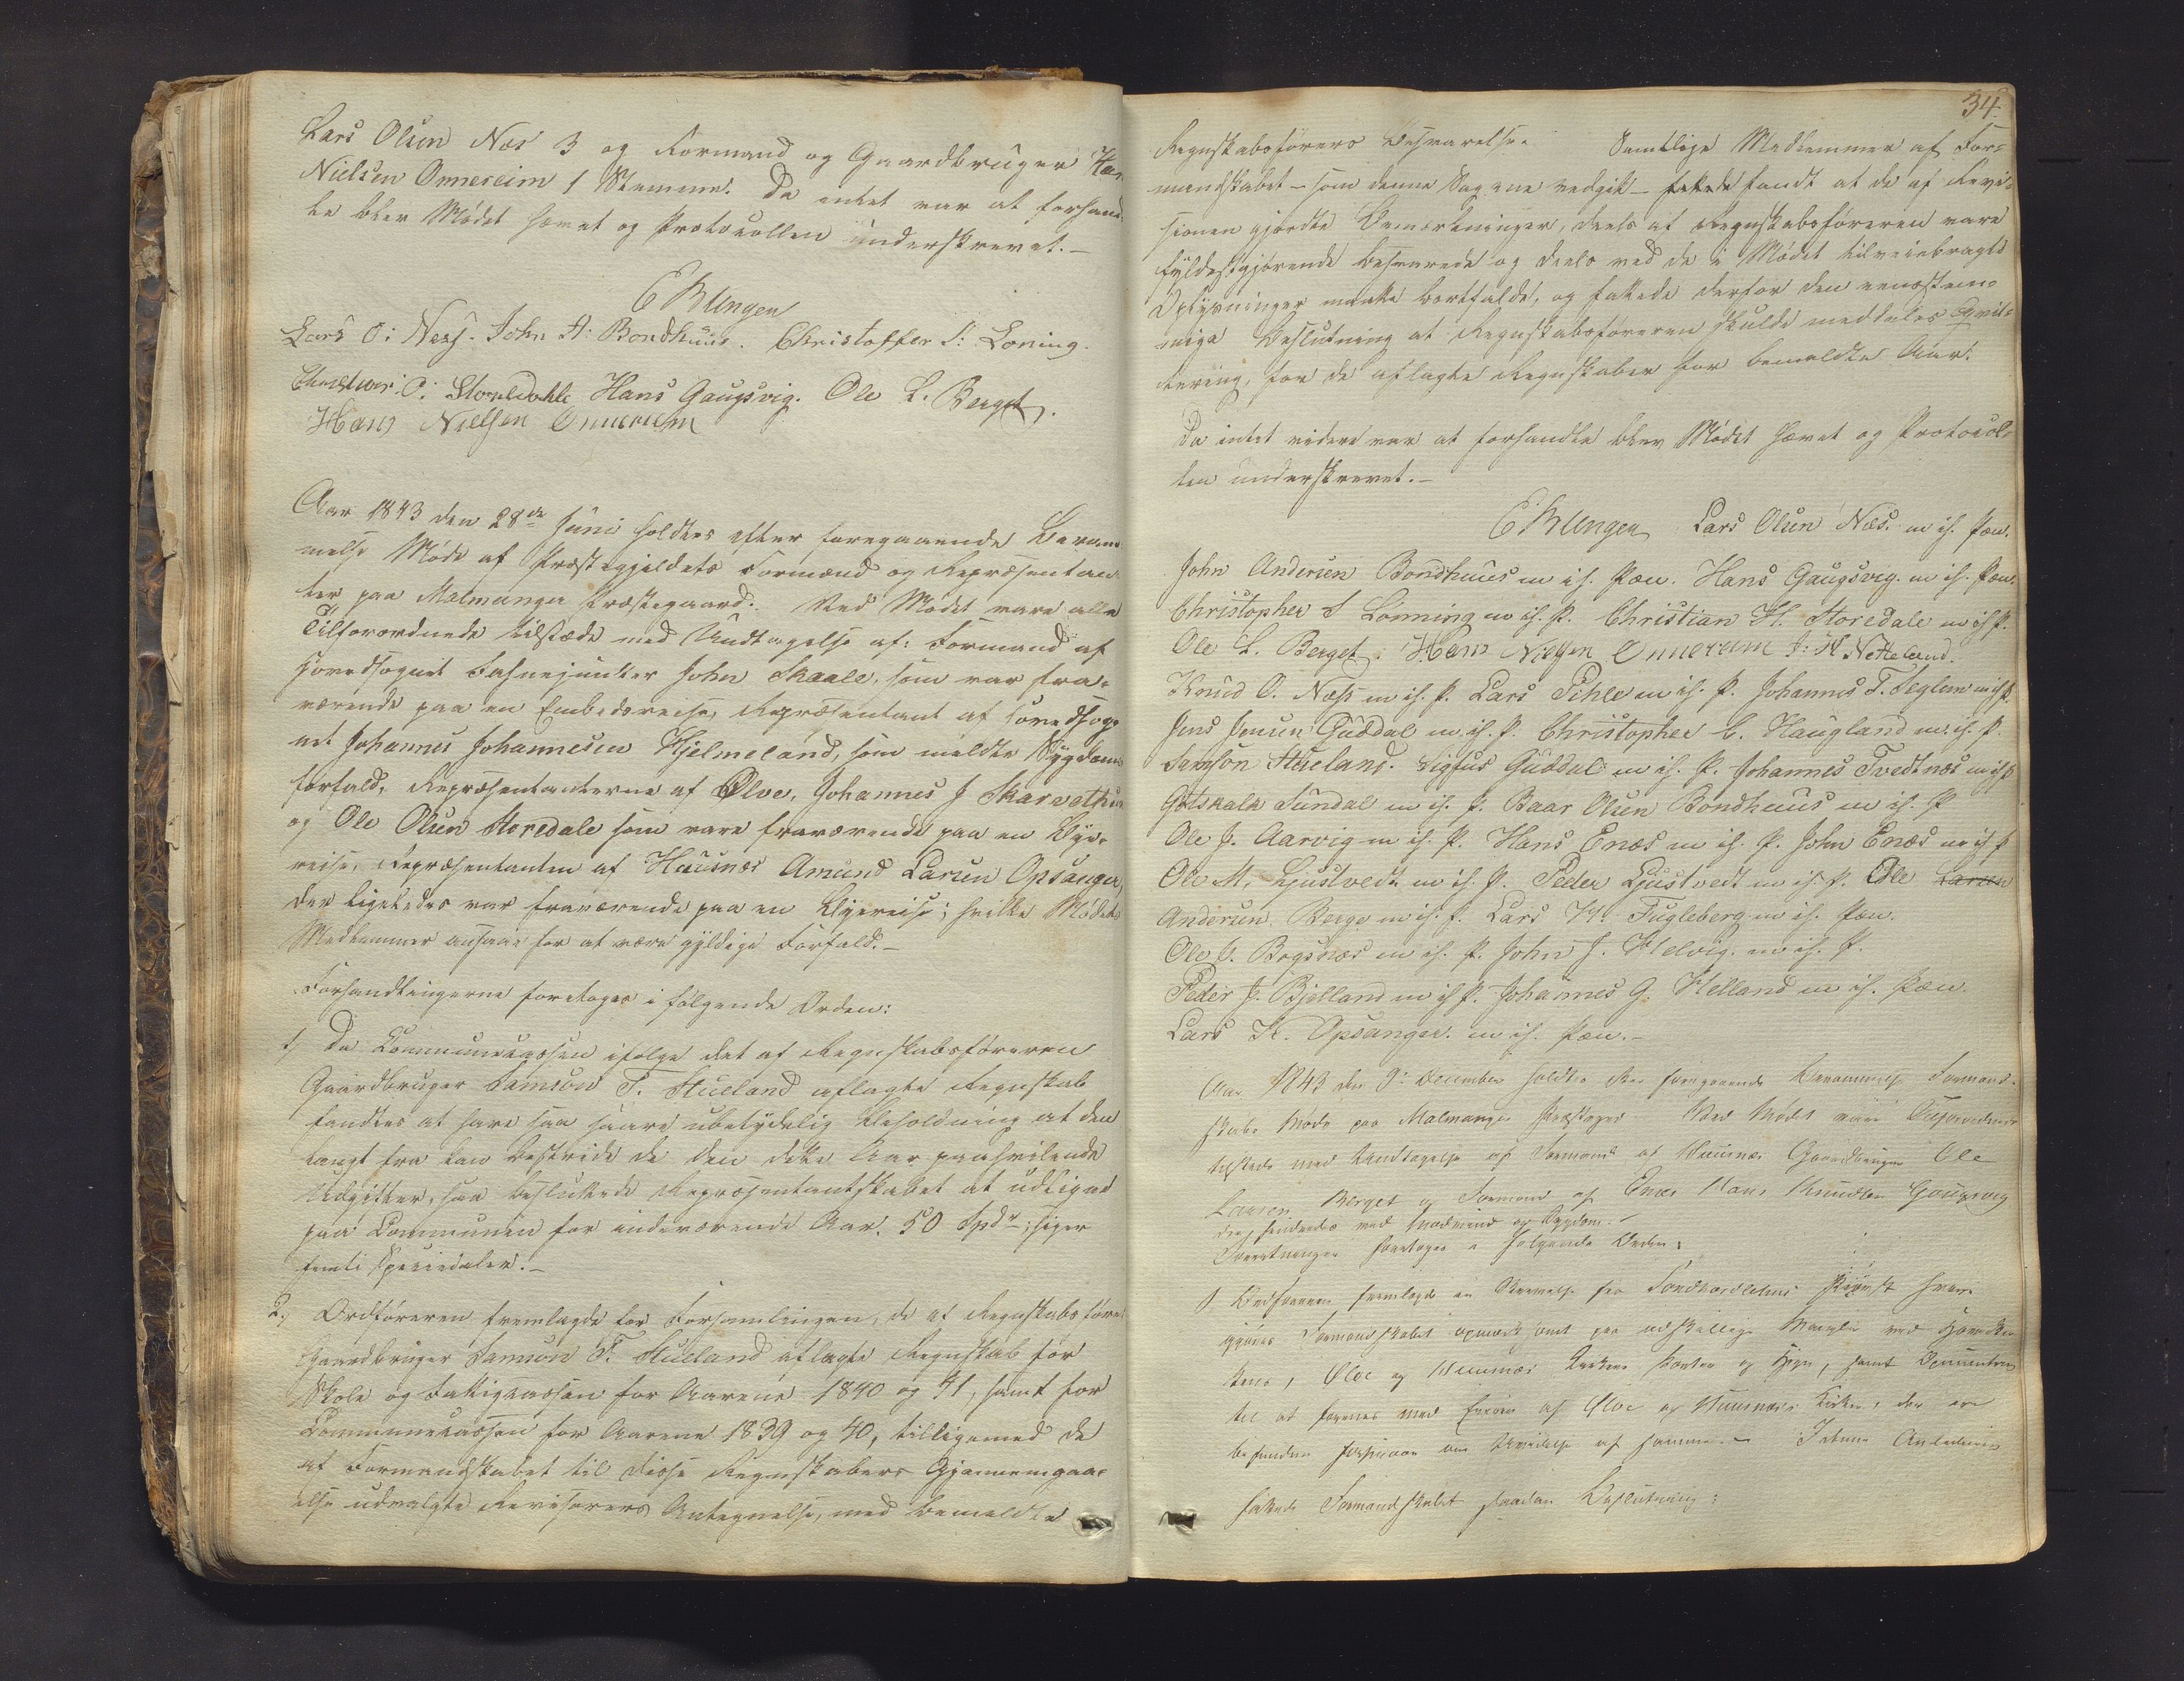 Lars Olsen Næs 3 og Formand og Gaardbruger Han
Nielsen Onnereim 1 Stemme. Da intet var at forhand
le blev Mødet hævet og Protocollen underskrevet.-
E Mungen
Lars O: Næs. John A: Bondhuus. Christoffer S: Loning.
Christian O: Storedahle Hans Gaugsvig. Ole L. Berget.
Hans Nielsen Onnereim
Aar 1843 den 28de Juni holdtes efter foregaaende Beram
melse Møde af Præstegjeldets Formænd og Repræsentan
ter paa Malmanger Præstegaard. Ved Mødet vare alle
Tilforordnede tilstæde med Undtagelse af: Formand af
Hovedsognet Fasnejunker John Skaale, som var fra-
værende paa en Embedsreise, Repræsentant af Hovedsog-
net Johannes Johannesen Hjelmeland, som meldte Sygdoms
forfald, Repræsentanterne af Ølve, Johannes J Skarvathun
og Ole Olsen Storedale som vare fraværende paa en Bye-
reise, Repræsentanten af Huusnæs Amund Larsen Opsanger,
der ligeledes var fraværende paa en Byereise; hvilke Mødets
Medlemmer ansaae for at være gyldige Forfald.-
Forhandlingerne foretoges i følgende Orden:
1, Da Communecassen ifølge det af Regnskabsføreren
Gaardbruger Samson T. Stueland aflagte Regnskab
fandtes at have saa saare ubetydelig Beholdning at den
langt fra kan bestride de den dette Aar paahvilende
Udgifter, saa besluttede Repræsentantskabet at udligne
paa Communen for indeværende Aar. 50 Spdr: siger
femti Speciedaler.-
2, Ordføreren fremlagde for Forsamlingen, de af Regnskabsføre
Gaardbruger Samson T. Stueland aflagte Regnskab for
Skole og Fattigcassen for Aarene 1840 og 41, samt for
Communecassen for Aarene 1839 og 40, tilligemed de
af Formandskabet til disse Regnskabers Gjennemgaa-
else udvalgte Revisorers Antegnelse, med bemeldte
34.
Regnskabsførers Besvarelse. Samtlige Medlemmer af For-
mandskabet - som denne Sag ene vedgik - fattede fandt at de af Revi-
sionen gjordte Bemærkninger, deels af Regnskabsføreren vare
fyldestgjørende besvarede og deels ved de i Mødet tilveiebragte
Oplysninger maatte bortfalde, og fattede derfor den eenstem-
mige Beslutning at Regnskabsføreren skulde meddeles Qvit-
tering, for de aflagte Regnskaber for bemeldte Aar.
Da intet videre var at forhandle blev Mødet hævet og Protocol-
len underskrevet.-
E Mungen Lars Olsen Næs. m ih. Pæn.
John Andersen Bondhuus m ih. Pæn. Hans Gaugsvig. m ih. Pæn.
Christopher S Lønning m ih. P. Christian H. Storedale m ih P.
Ole L. Berget. Hans Nielsen Onnereim J: H Netteland.
Knud O. Næss m ih. P. Lars Pihle m ih. P. Johannes T. Teglem m ih P.
Jens Jensen Guddal m. ih. P. Christopher C. Haugland m. ih. P.
Samson Stueland. Sigfus Guddal m ih. P. Johannes Tvedtnæs m ih P
Gotskalk Sundal m ih. P. Baar Olsen Bondhuus m ih. P
Ole J. Aarvig m ih. P. Hans Enæs m ih. P. John Enæs m ih P
Ole M. Ljustvedt m ih. P. Peder Ljustvedt m ih. P. Ole Larsen
Andersen Berge m ih. P. Lars H. Fugleberg m ih. Pæn.
Ole O. Bogsnæs m ih. P. John J. Helvig. m ih. P.
Peder J. Bjelland m ih P. Johannes G. Helland m ih. Pæn.
Lars K. Opsanger. m ih. Pæn.-
Aar 1843 den 9: December holdtes efter foregaaende Berammelse Formand-
skabs Møde paa Malmanger Præstegrd Ved Mødet vare Tilforordnede
tilstede med Undtagelse af Formand af Huusnæs Gaardbruger Ole
Larsen Berget og Formand af Enæs Hans Knudsen Gaugsvig
der hindredes ved Modvind og Sygdom.-
Forretningen foretoges i følgende Orden:
1 Ordføreren fremlagde en Skrivelse fra Søndhordlehns hvori
gjøres Formandskabet opmærksomt paa adskillige Mangler ved Hovedkir
kens, Ølve og Huusnæs Kirkers og Hegn, samt
til at forenes med Eieren af Ølve og Huusnæs Kirker, der ere
befundne af samme.- I denne Anledning
fattede Formandskabet saadan Beslutning: